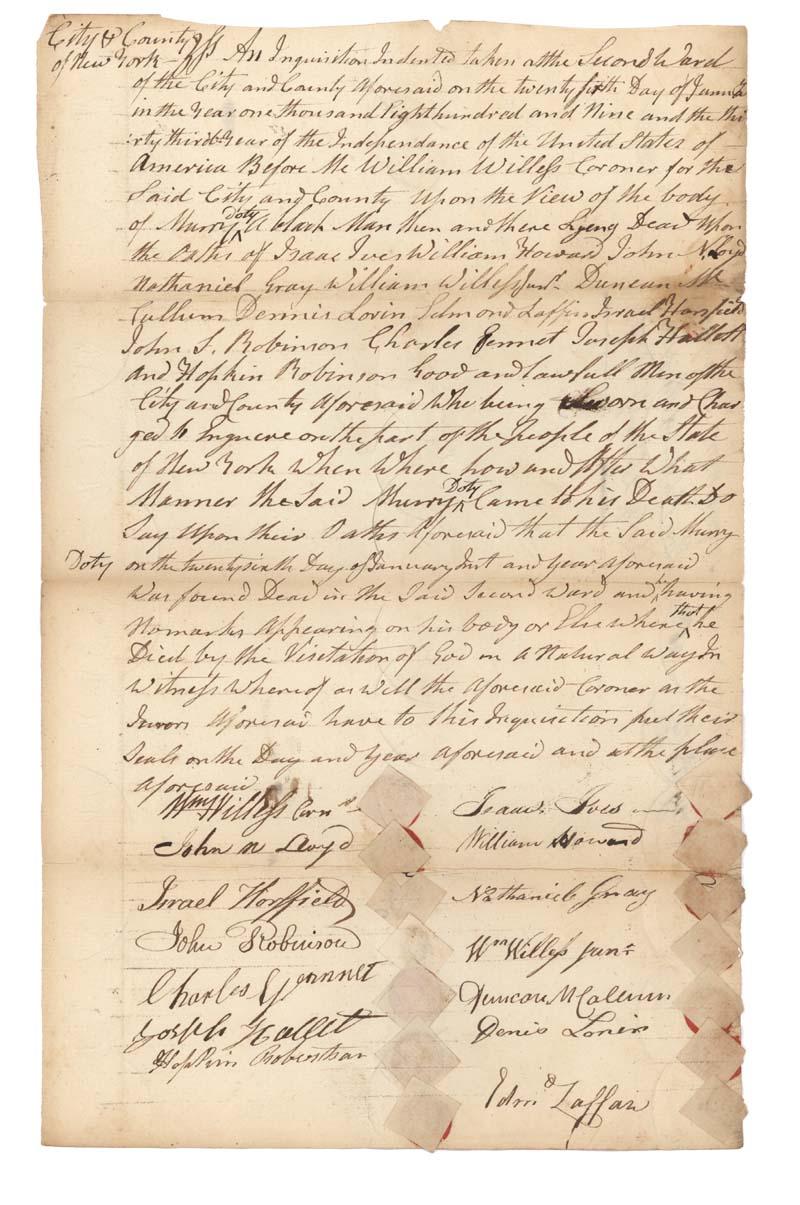 City & County ss An Inquisition Indented taken at the Second Ward
of New York
of the City and County Aforesaid on the twenty sixth Day of Januar
in the Year one thousand Eighthundred and Nine and the thi
rty third Year of the Independance of the United States of
America Before Me William Willess Coroner for the
Said City and County Upon the View of the body
of Murry Doty A black Man then and there Lyeng Dead Upon
the Oaths of Isaac Ives William Howard John N Loyd
Nathaniel Gray William Willess Junr. Duncan Mc
Cullum Dennis Lorin Edmond Laffin Israel Horsfield
John S. Robinson Charles Gennet Joseph Hallett
and Hopkin Robinson Good and lawfull Men of the
City and County Aforesaid Who being Sworn and Char
ged to Enquere on the part of the People of the State
of New York When Where how and After What
Manner the Said Murry Doty Came to his Death Do
Say Upon their Oaths Aforesaid that the Said Murry
Doty on the twenty sixth Day of January Inst and Year Aforesaid
Was found Dead in the Said Second Ward and having
No marks Appearing on his body or Else Where that he
Died by the Visetation of God in A Natural Way In
Witness Where of as well the Aforesaid Coroner as the
Jurors Aforesaid have to this Inquisition put their
Seals on the Day and Year Aforesaid and at the place
Aforesaid
Wm Willess Cornr Isaac Ives
John N Loyd William Howard
Israel Horsfield Nathaniel Gray
John Robinson Wm Willess Junr
Charles Gennet Duncan McCallum
Joseph Hallet Denis Lorin
Hopkin
Edmd Laffan